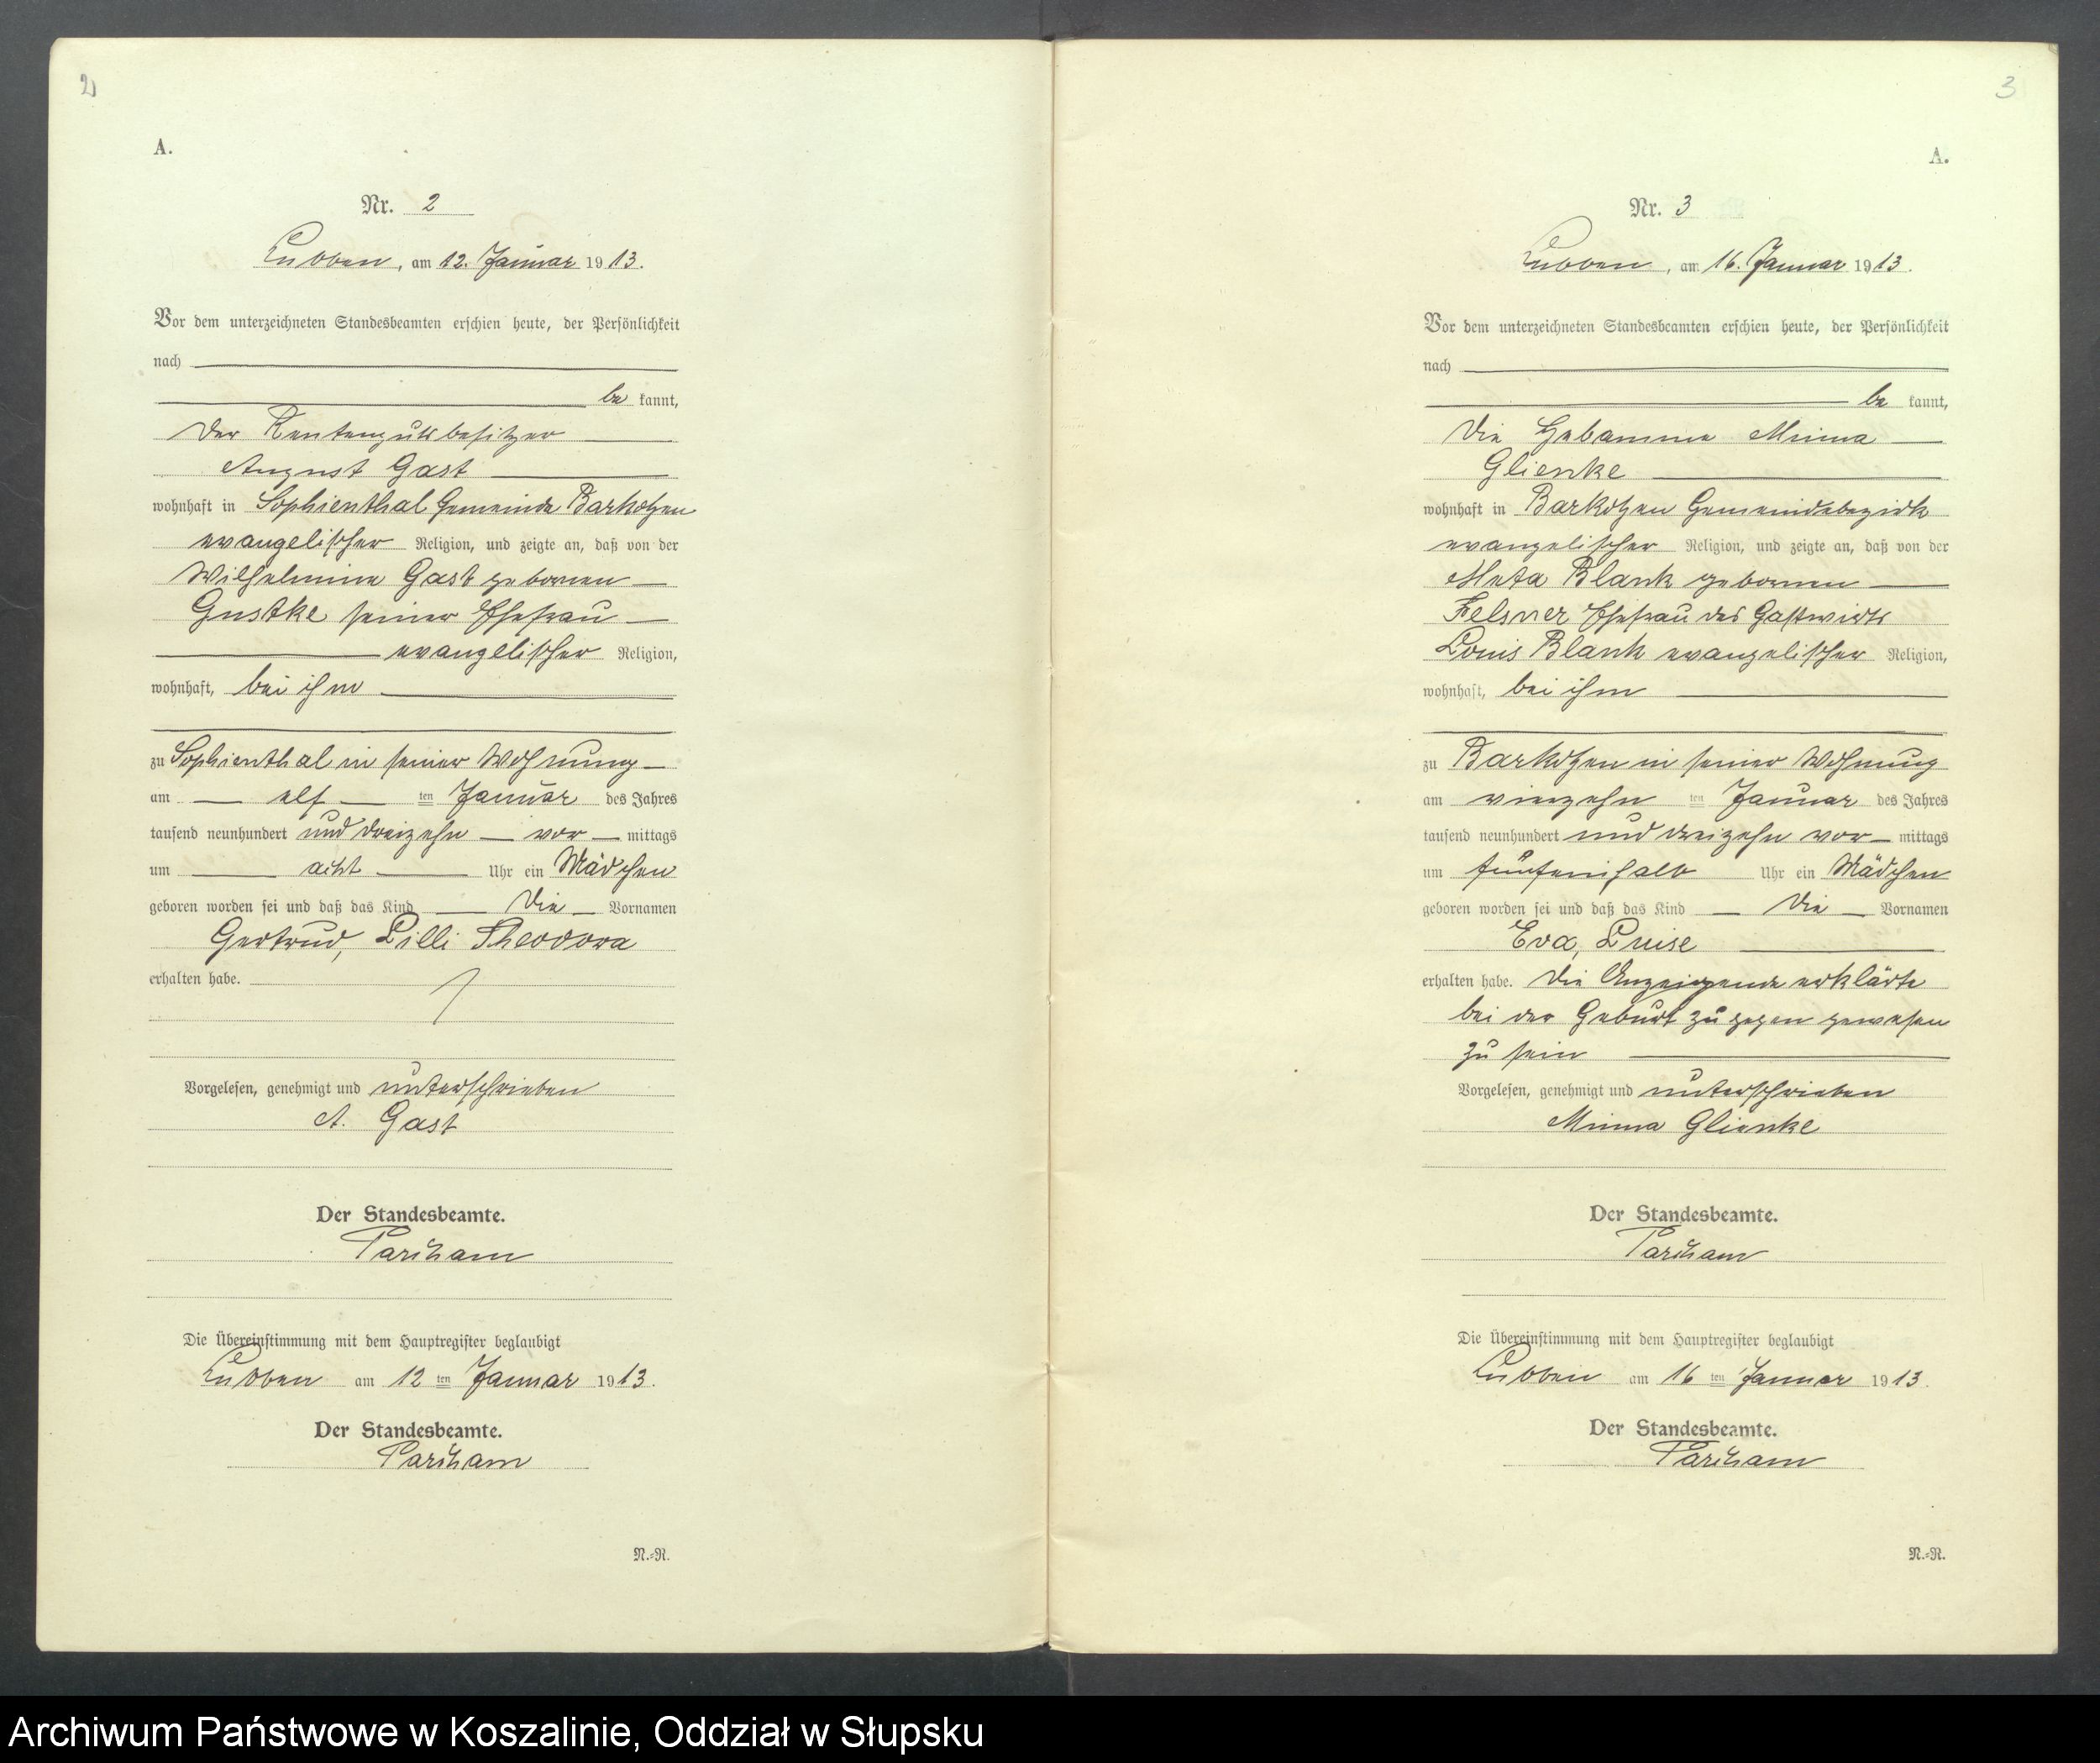 2
A.
Nr. 2
Lubben, am 12. Januar 1913.
Vor dem unterzeichneten Standesbeamten erschien heute, der Persönlichkeit
nach
be kannt,
der Rentengutsbesitzer
August Gast
wohnhaft in Sophienthal Gemeinde Barkotzen
evangelischer Religion, und zeigte an, daß von der
Wilhelmine Gast geborenen
Gustke seiner Ehefrau
evangelischer Religion,
wohnhaft, bei ihm
zu Sophienthal in seiner Wohnung
am elf ten Januar des Jahres
tausend neunhundert und dreizehn vor mittags
um acht Uhr ein Mädchen
geboren worden sei und daß das Kind die Vornamen
Gertrud, Lilli Theodora
erhalten habe.
Vorgelesen, genehmigt und unterschrieben
A. Gast
Der Standesbeamte.
Die Übereinstimmung mit dem Hauptregister beglaubigt
Lubben am 12 ten Januar 1913.
Der Standesbeamte.
N.=R.
3
A.
Nr. 3
Lubben, am 16. Januar 1913.
Vor dem unterzeichneten Standesbeamten erschien heute, der Persönlichkeit
nach
be kannt,
die Hebamme Minna
Glienke
wohnhaft in Barkotzen Gemeindebezirk
evangelischer Religion, und zeigte an, daß von der
Meta Blank geborenen
Felsner Ehefrau des Gastwirts
Louis Blank evangelischer Religion,
wohnhaft, bei ihm
zu Barkotzen in seiner Wohnung
am vierzehn ten Januar des Jahres
tausend neunhundert und dreizehn vor mittags
um fünfeinhalb Uhr ein Mädchen
geboren worden sei und daß das Kind die Vornamen
Eva, Luise
erhalten habe. Die Anzeigende erklärte
bei der Geburt zugegen gewesen
zu sein
Vorgelesen, genehmigt und unterschrieben
Minna Glienke
Der Standesbeamte.
Die Übereinstimmung mit dem Hauptregister beglaubigt
Lubben am 16 ten Januar 1913.
Der Standesbeamte.
N.=R.
Archiwum Państwowe w Koszalinie, Oddział w Słupsku